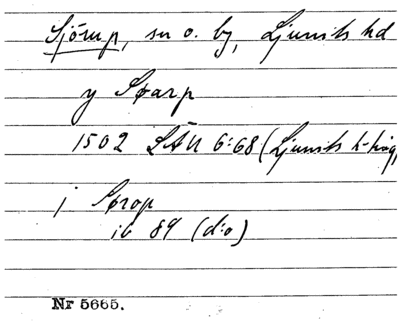 Sjörup, sn o. by, Ljunits hd
y Søarp
1502 LÄU 6:68 (Ljunits h-ting,
j Sørop
ib 89 (d:o)
Nr 5665.